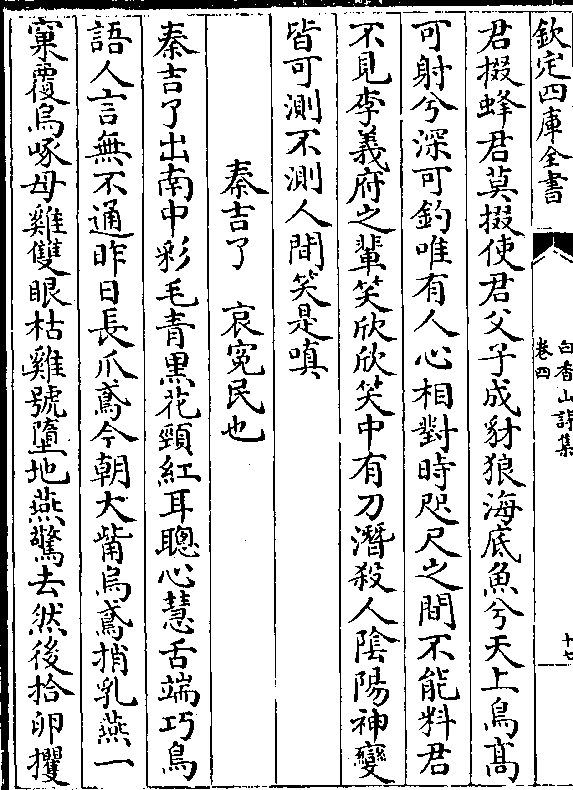 欽定四庫全書
白香山詩集
卷四
十七
君掇蜂君莫掇使君父子成豺狼海底魚兮天上鳥高
可射兮深可釣唯有人心相對時咫尺之間不能料君
不見李義府之輩笑欣欣笑中有刀潛殺人陰陽神變
皆可測不測人間笑是嗔
秦吉了 哀寃民也
秦吉了出南中彩毛青黒花頸紅耳聰心慧舌端巧鳥
語人言無不通昨日長爪鳶今朝大觜烏鳶捎乳燕一
窠覆烏啄母雞雙眼枯雞號墮地燕驚去然後拾卵攫